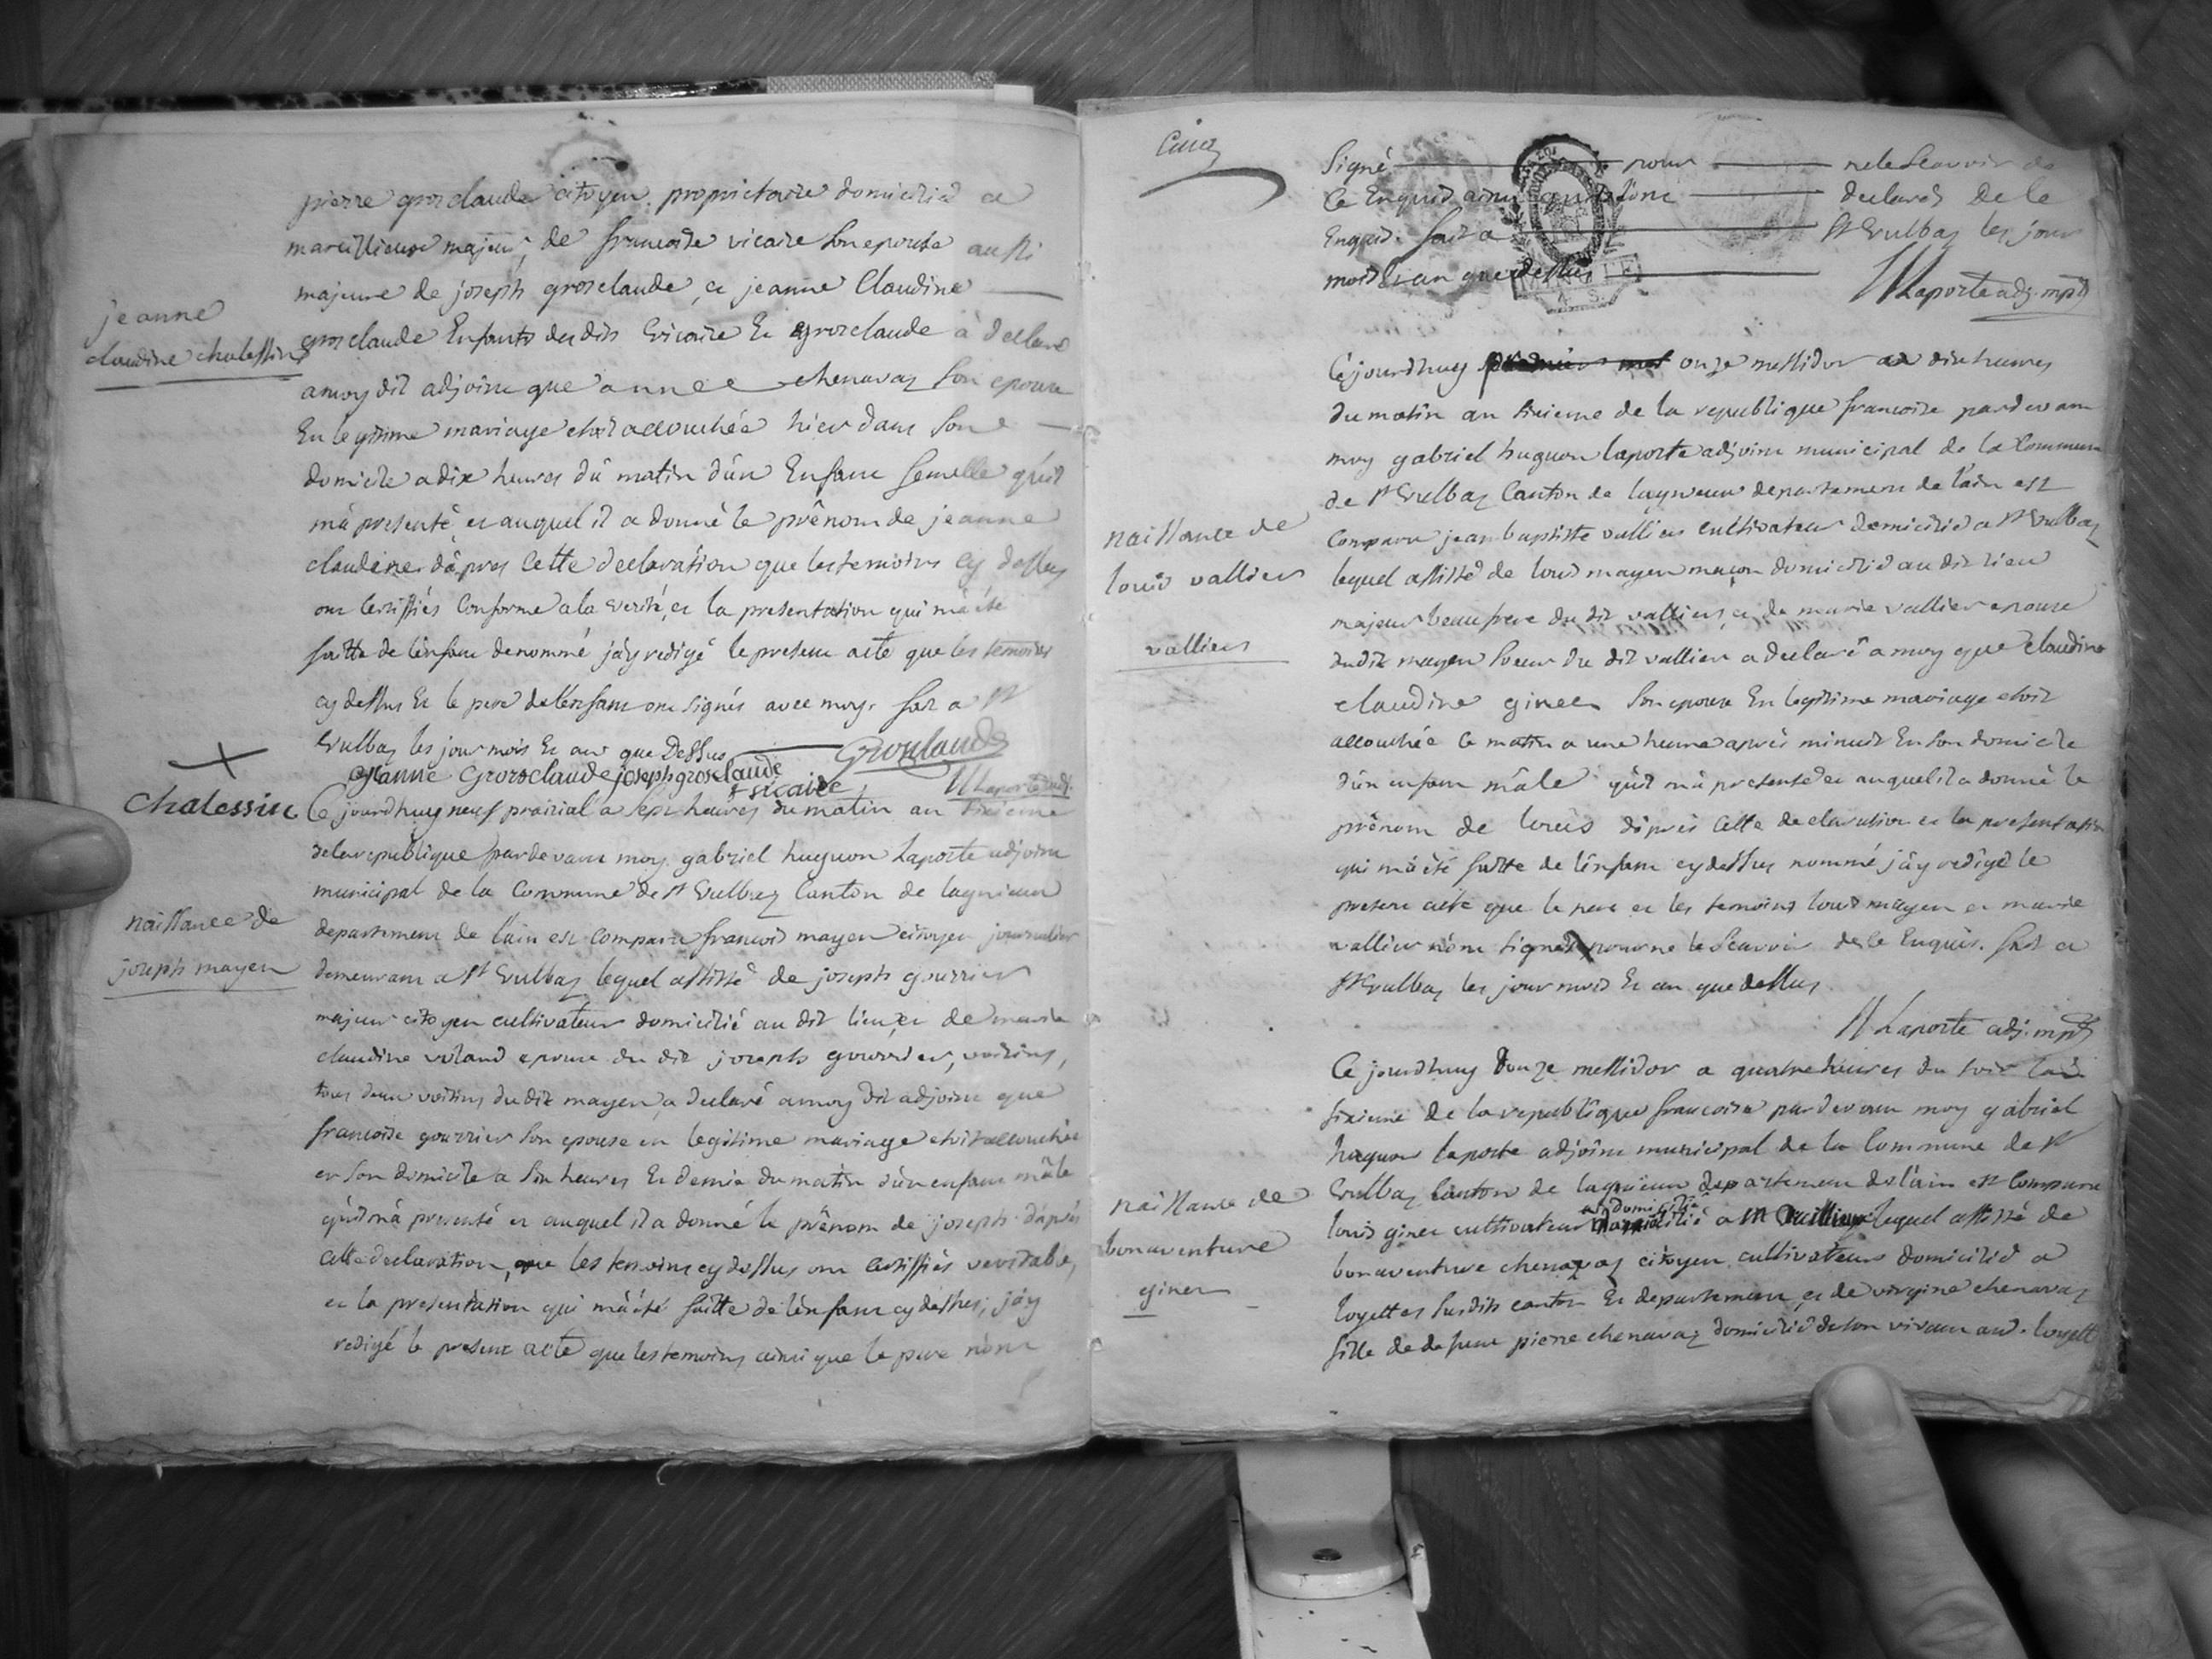 pierre grosclaude citoyen proprietaire domicilié a
marcillieux majeur, de francoise vicaire son epouse aussi
majeure de joseph grosclaude, et jeanne Claudine
jeanne
claudine chalessin
grosclaude Enfants des dits vicaire Et grosclaude à declaré
amoy dit adjoint que annee chenavaz son epouse
En legitime mariage etoit accouchée hier dans son
domicile a dix heures du matin d'un Enfant femelle qu'il
m'a presenté, et auquel il a donné le prênom de jeanne
claudine, d'apres Cette declaration que les temoins cy dessus
ont Certiffiés Conforme a la verité, et la presentation qui m'a été
faitte de l'enfant denommé j'ay redigé le present acte que les temoins
cy dessus Et le pere de l'enfant ont signés avec moy. fait a St
Vulbaz les jour mois Et an que Dessus
Grosclaude
jeanne Grosclaude joseph grosclaude
f vicaire
H Laporte adj.
Chalessin
Ce jourdhuy neuf prairial a sept heures du matin an sixieme
de la republique pardevant moy gabriel huguon Laporte adjoint
municipal de la Commune de St Vulbaz Canton de lagnieux
naissance de
joseph mayen
departement de l'ain est Comparu francois mayen citoyen journalier
demeurant a St Vulbaz lequel assisté de joseph gourrier
majeur citoyen cultivateur domicilié au dit lieu, et de marie
claudine epouse du dit joseph gourrier, voisins,
tous deux voisins du dit mayen, a declaré amoy dit adjoint que
francoise gourrier son epouse en legitime mariage etoit accouchée
en son domicile a six heures Et demie du matin d'un enfant mâle
qu'il m'a presenté et auquel il a donné le prênom de joseph d'après
cette declaration, que les temoins cy dessus ont certiffiés veritable,
et la presentation qui m'a été faitte de l'enfant cy dessus, j'ay
redigé le present acte que les temoins ainsi que le pere n'ont
Cinq
signé pour ne le scavoir de
Ce Enquis ainsi qu'ils l'ont declarés De le
Enquis. fait a St Vulbaz les jour
mois Et an que dessus
H Laporte adj. mpal
Ce jourdhuy onze messidor a dix heures
du matin an sixieme de la republique francoise pardevant
moy gabriel huguon laporte adjoint municipal de la Commune
de St Vulbaz Canton de lagnieux departement de l'ain est
naissance de
louis vallier
vallier
Comparu jean baptiste vallier cultivateur domicilié a St Vulbaz
lequel assisté de louis mayen maçon domicilié au dit lieu
majeur beau frere du dit vallier, et de marie vallier epouse
dudit mayen soeur du dit vallier a declaré a moy que claudine
claudine giner son epouse En legitime mariage etoit
accouchée ce matin a une heure après minuit En son domicile
d'un enfant mâle qu'il m'a presenté et auquel il a donné le
prênom de louis d'après cette declaration et la presentation
qui m'a été faitte de l'enfant cy dessus nommé j'ay redigé le
present acte que le pere et les temoins louis mayen et marie
vallier n'ont signés pour ne le scavoir de ce Enquis. fait a
St Vulbaz les jour mois Et an que dessus
H Laporte adj. mpal
Ce jourdhuy douze messidor a quatre heures du soir l'an
sixieme de la republique francoise pardevant moy gabriel
huguon laporte adjoint municipal de la Commune de St
naissance de
bonaventure
giner
Vulbaz Canton de lagnieux departement de l'ain est Comparu
louis giner cultivateur domicilié a lequel assisté de
bonaventure chenavaz citoyen cultivateur domicilié a
loyettes susdits canton Et departement, et de virgine chenavaz
fille de defunt pierre chenavaz domicilié de son vivant aud. loyette